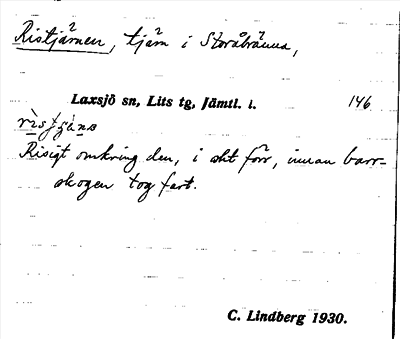 Ristjärnen, tjärn i Storåbränna,
Laxsjö sn, Lits tg, Jämtl. l. 146
Risigt omkring den, i sht förr, innan barr-
skogen tog fart.
C. Lindberg 1930.